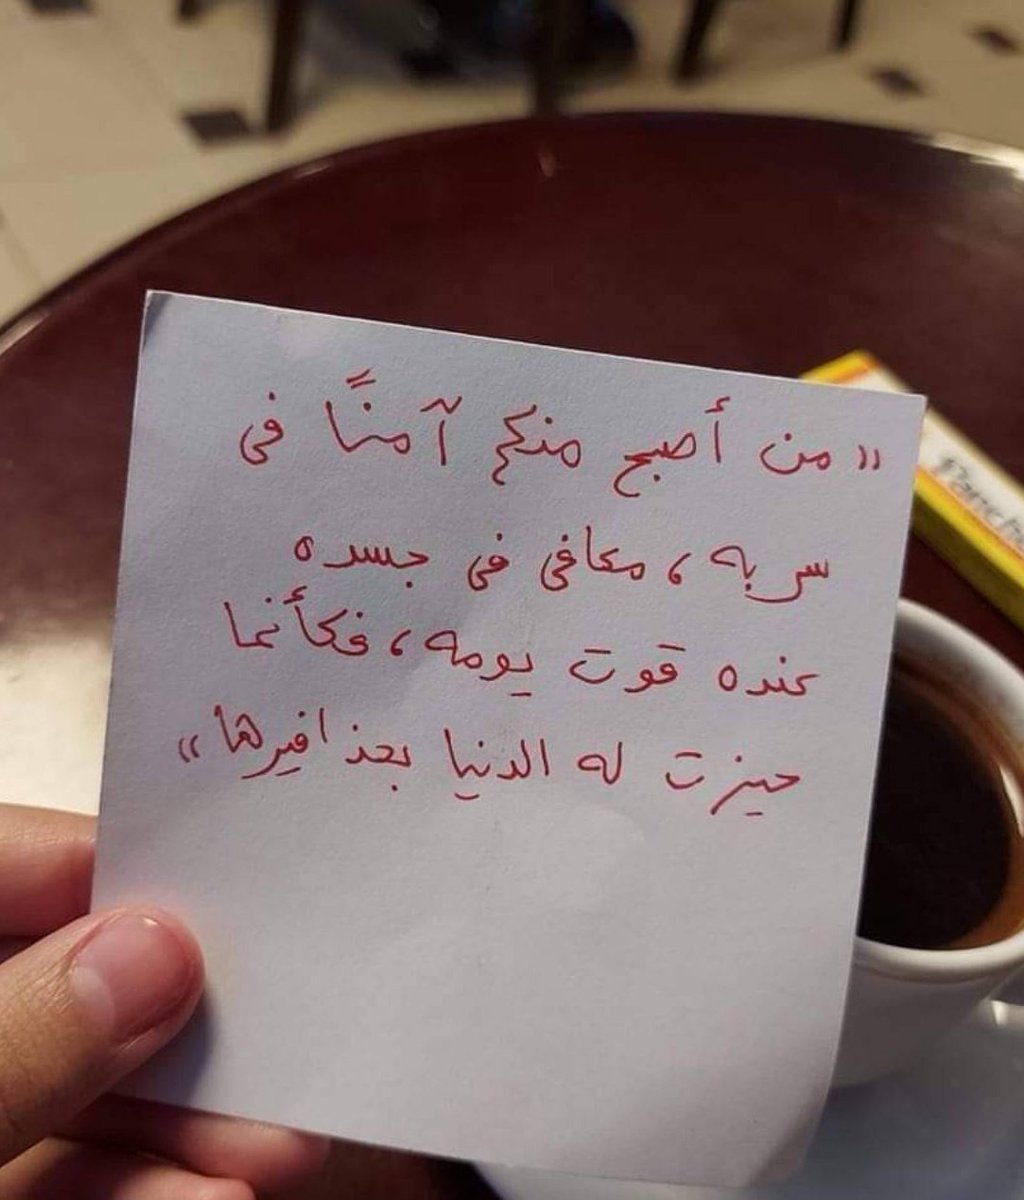 « من أصبح منكم آمنًا فى
سربه، معافى فى جسده
عنده قوت يومه، فكأنما
حيزت له الدنيا بحذافيرها »